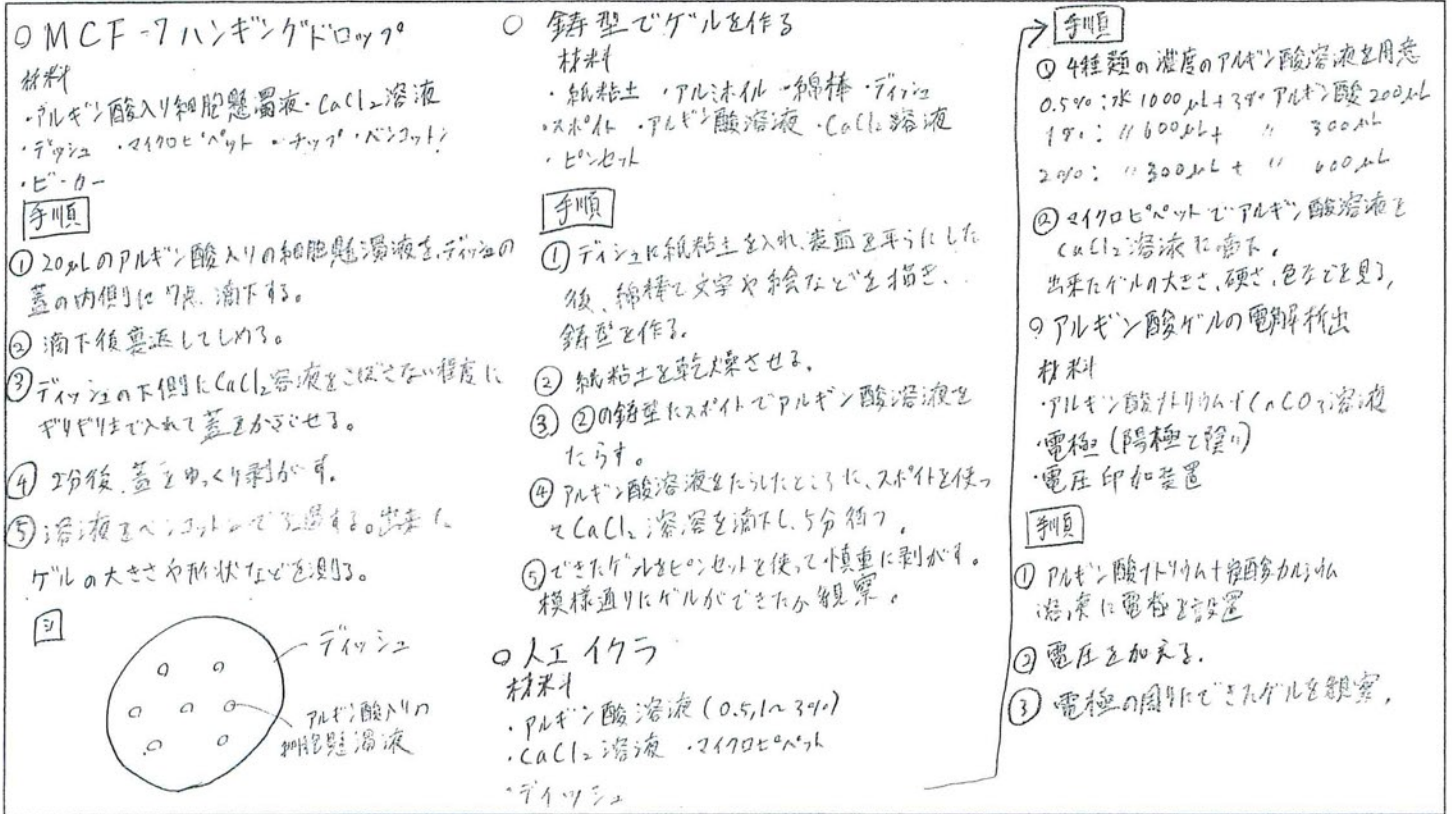 ○ MCF-7ハンギングドロップ
材料
・アルギン酸入り細胞懸濁液・CaCl₂溶液
・デッシュ ・マイクロピペット ・チップ・ベンコットン
・ビーカー
手順
① 20μLのアルギン酸入りの細胞懸濁液を、ディッシュの
蓋の内側に7点、滴下する。
② 滴下後裏返してしめる。
③ ディッシュの下側にCaCl₂溶液をこぼさない程度に
ギリギリまで入れて蓋をかぶせる。
④ 2分後、蓋をゆっくり剥がす。
⑤ 溶液をベンコットンでろ過する。出来た
ゲルの大きさや形状などを測る。
ディッシュ
アルギン酸入りの
細胞懸濁液
○ 鋳型でゲルを作る
材料
・紙粘土 ・アルミホイル ・綿棒 ・ディッシュ
・スポイト ・アルギン酸溶液 ・CaCl₂溶液
・ピンセット
手順
① ディシュに紙粘土を入れ、表面を平らにした
後、綿棒で文字や絵などを描き、
鋳型を作る。
② 紙粘土を乾燥させる。
③ ②の鋳型にスポイトでアルギン酸溶液を
たらす。
④ アルギン酸溶液をたらしたところに、スポイトを使っ
てCaCl₂溶容を滴下し、5分待つ。
⑤ できたゲルをピンセットを使って慎重に剥がす。
模様通りにゲルができたか観察。
○ 人工イクラ
材料
・アルギン酸溶液(0.5,1~3%)
・CaCl₂溶液 ・マイクロピペット
・ディッシュ
手順
① 4種類の濃度のアルギン酸溶液を用意
0.5%:水1000μL+3%アルギン酸200μL
1%:〃600μL+ 〃 300μL
2%:〃300μL+ 〃 600μL
② マイクロピペットでアルギン酸溶液を
CaCl₂溶液に滴下。
出来たゲルの大きさ、硬さ、色などを見る。
○ アルギン酸ゲルの電解析出
材料
・アルギン酸ナトリウム+CaCO₃溶液
・電極(陽極と陰〃)
・電圧印加装置
手順
① アルギン酸ナトリウム+炭酸カルシウム
溶液に電極を設置
② 電圧を加える。
③ 電極の周りにできたゲルを観察。